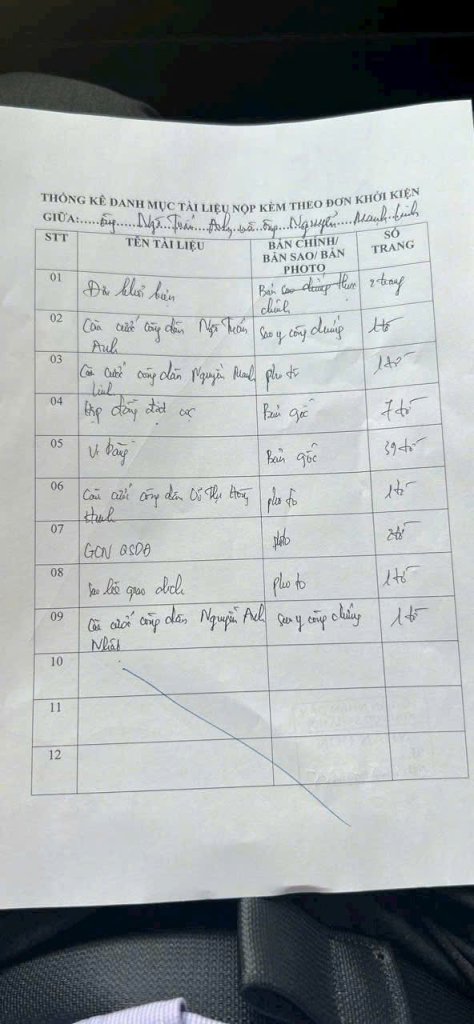 THỐNG KÊ DANH MỤC TÀI LIỆU NỘP KÈM THEO ĐƠN KHỞI KIỆN
GIỮA:.....ông Ngô Tuấn Anh và ông Nguyễn Mạnh Linh
STT TÊN TÀI LIỆU BẢN CHÍNH/ BẢN SAO/ BẢN PHOTO SỐ TRANG
01 Đơn khởi kiện Bản chính 2 trang
02 Căn cước công dân Ngô Tuấn Anh Sao y công chứng 1 tờ
03 Căn cước công dân Nguyễn Mạnh Linh pho to 1 tờ
04 Hợp đồng đặt cọc Bản gốc 7 tờ
05 Vi bằng Bản gốc 39 tờ
06 Căn cước công dân Thị Hồng Hạnh pho to 1 tờ
07 GCN QSDĐ photo 2 tờ
08 Sao kê giao dịch pho to 1 tờ
09 Căn cước công dân Nguyễn Anh Nhật Sao y công chứng 1 tờ
10
11
12